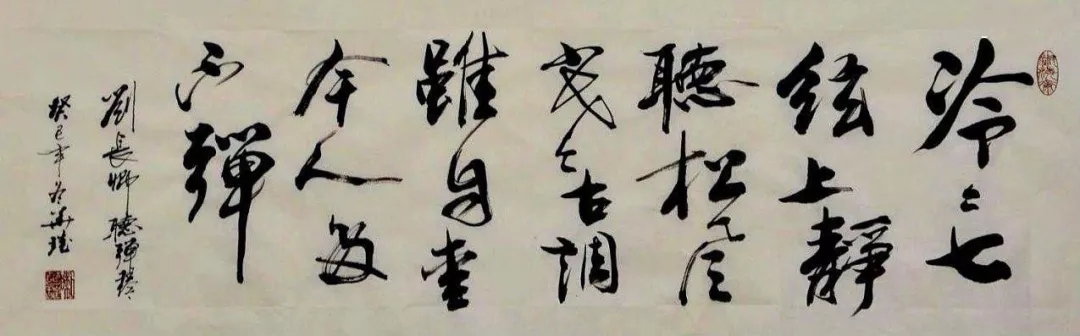 泠々七
絃上靜
聽松風
寒古調
雖自愛
今人多
不彈
劉長卿聽彈琴
癸巳年